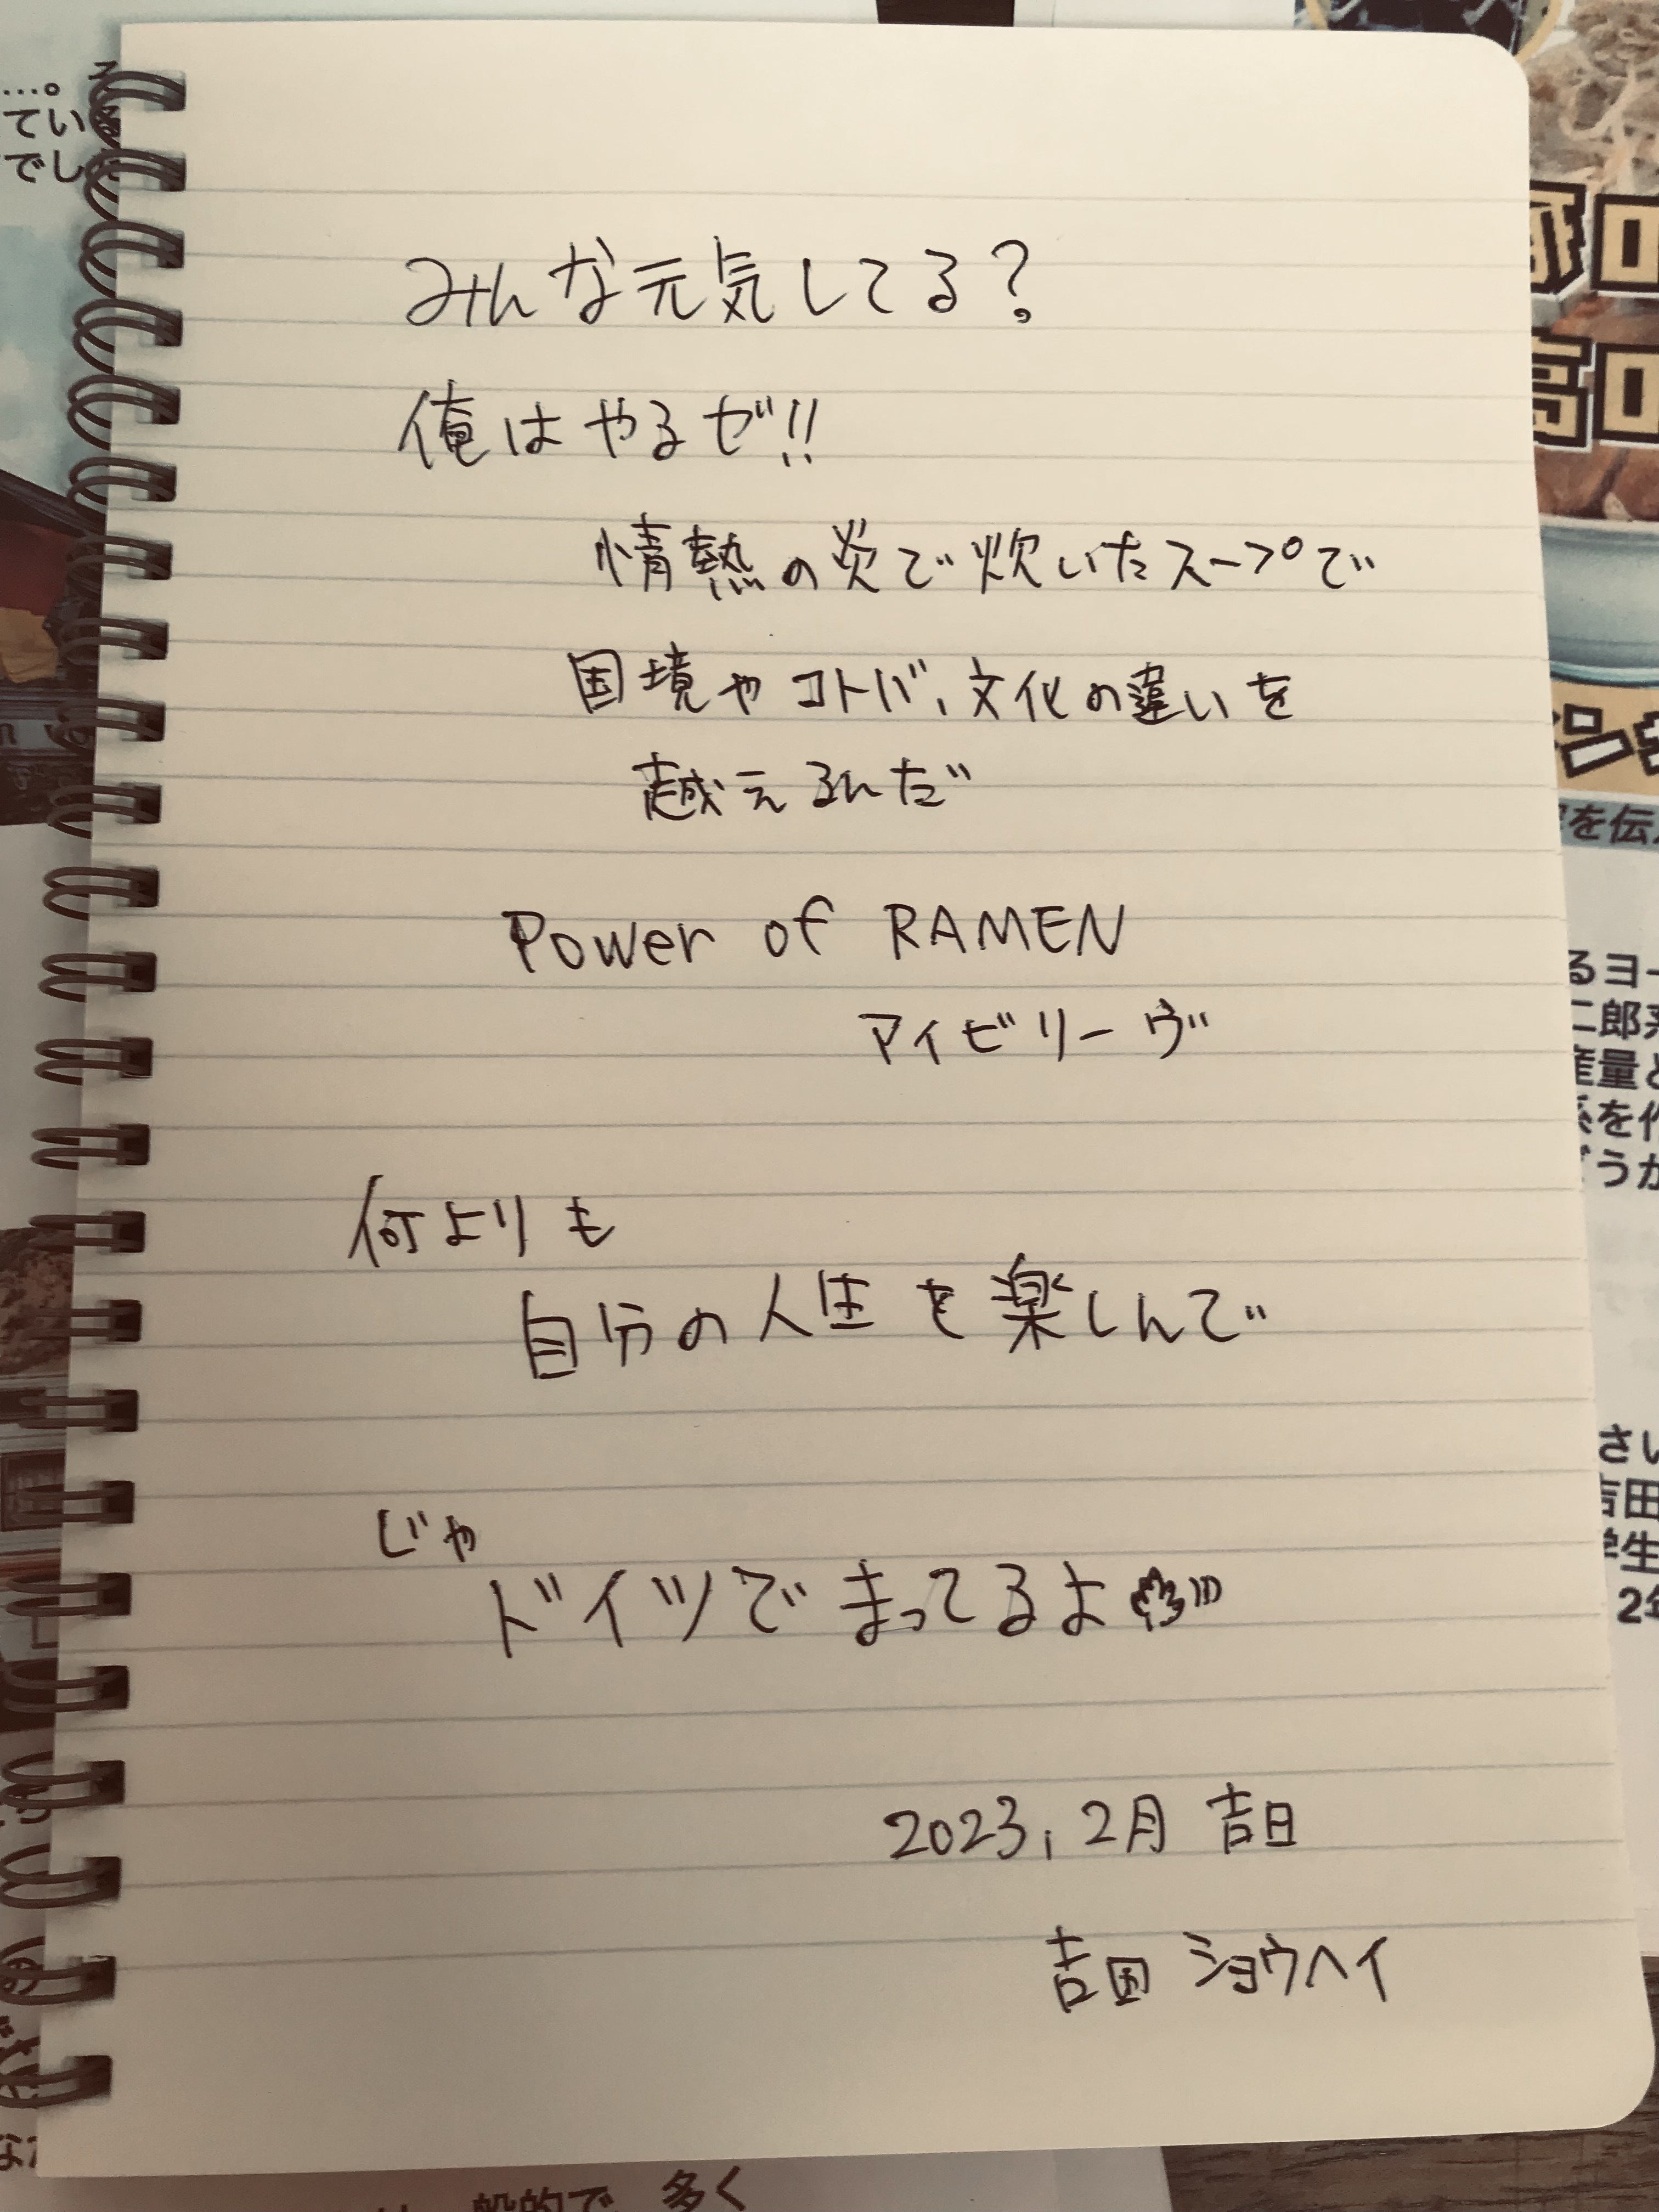 みんな元気してる?
俺はやるぜ!!
情熱の炎で炊いたスープで
国境やコトバ、文化の違いを
越えるんだ
Power of RAMEN
アイビリーヴ
何よりも
自分の人生を楽しんで
じゃ
ドイツでまってるよ
2023, 2月 吉日
吉田 ショウヘイ
…。
てい
でし
を伝え
るヨー
二郎系
産量と
系を作
どうか
さい
吉田
学生
2年
般的で、多く